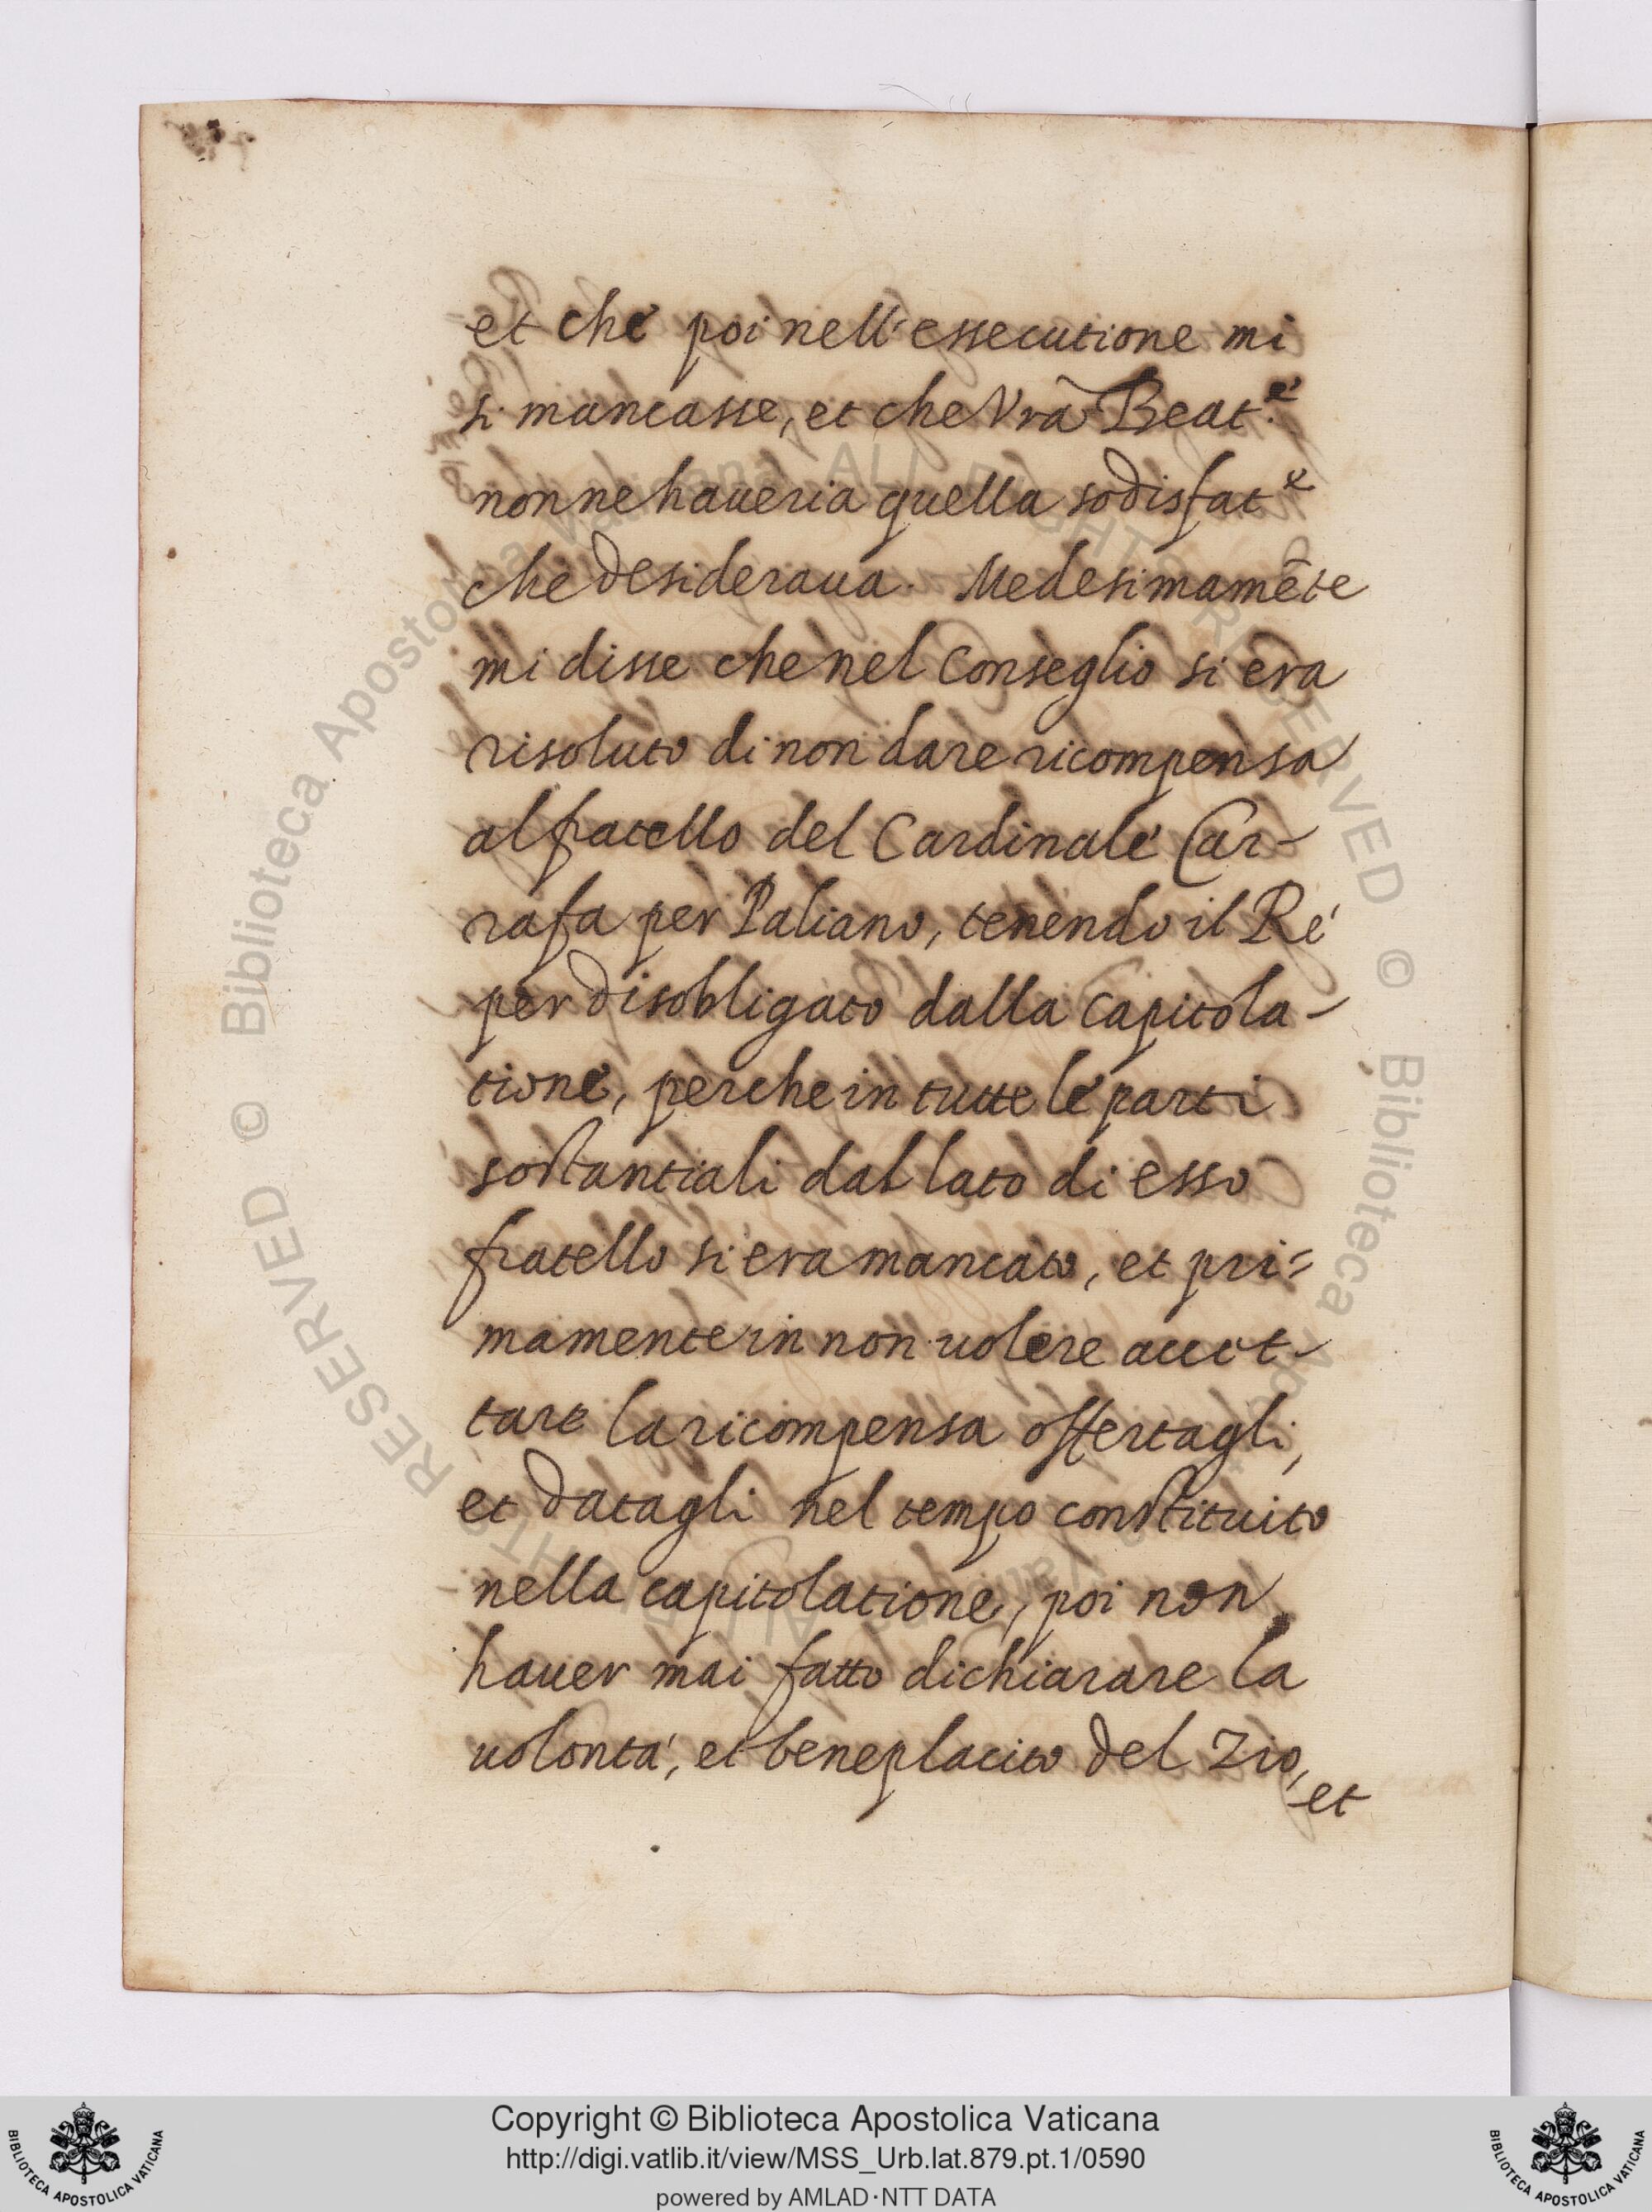 et che poi nell'essecutione mi
si mancasse, et che Vrã Beat.e
non ne haueria quella sodisfat.e
che desideraua. Medesimamẽte
mi disse che nel Conseglio si era
risoluto di non dare ricompensa
al fratello del Cardinale Car-
rafa per Paliano, tenendo il Ré
per disobligato dalla capitola-
tione, perche in tutte le parti
sostantiali dal lato di esso
fratello si era mancato, et pri=
mamente in non uolere accet-
tare la ricompensa offertagli,
et datagli nel tempo constituito
nella capitolatione, poi non
hauer mai fatto dichiarare la
uolontá, et beneplacito del Zio,
et
© Biblioteca Apostolica Vaticana ALL RIGHTS RESERVED © Biblioteca Apostolica Vaticana ALL RIGHTS RESERVED
Copyright © Biblioteca Apostolica Vaticana
http://digi.vatlib.it/view/MSS_Urb.lat.879.pt.1/0590
powered by AMLAD·NTT DATA
BIBLIOTECA APOSTOLICA VATICANA
BIBLIOTECA APOSTOLICA VATICANA